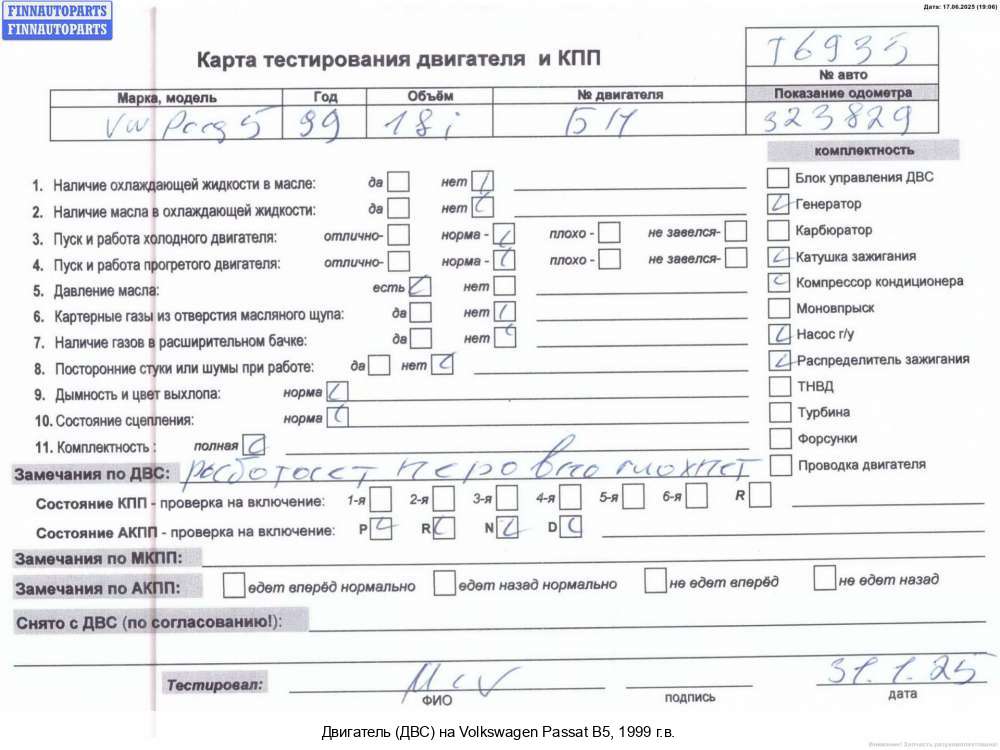 FINNAUTOPARTS
FINNAUTOPARTS
Дата: 17.06.2025 (19:06)
Карта тестирования двигателя и КПП
T6935
№ авто
Марка, модель Год Объём № двигателя Показание одометра
VW 99 18i 323829
комплектность
1. Наличие охлаждающей жидкости в масле: да нет
Блок управления ДВС
2. Наличие масла в охлаждающей жидкости: да нет
Генератор
3. Пуск и работа холодного двигателя: отлично- норма - плохо - не завелся-
Карбюратор
4. Пуск и работа прогретого двигателя: отлично- норма - плохо - не завелся-
Катушка зажигания
5. Давление масла: есть нет
Компрессор кондиционера
6. Картерные газы из отверстия масляного щупа: да нет
Моновпрыск
7. Наличие газов в расширительном бачке: да нет
Насос г/у
8. Посторонние стуки или шумы при работе: да нет
Распределитель зажигания
9. Дымность и цвет выхлопа: норма
ТНВД
10. Состояние сцепления: норма
Турбина
11. Комплектность : полная
Форсунки
Замечания по ДВС: работает неровно глохнет
Проводка двигателя
Состояние КПП - проверка на включение: 1-я 2-я 3-я 4-я 5-я 6-я R
Состояние АКПП - проверка на включение: P R N D
Замечания по МКПП:
Замечания по АКПП: едет вперёд нормально едет назад нормально не едет вперёд не едет назад
Снято с ДВС (по согласованию!):
Тестировал: 31.1.25
ФИО подпись дата
Двигатель (ДВС) на Volkswagen Passat B5, 1999 г.в.
Внимание! Запчасть разукомплектована!